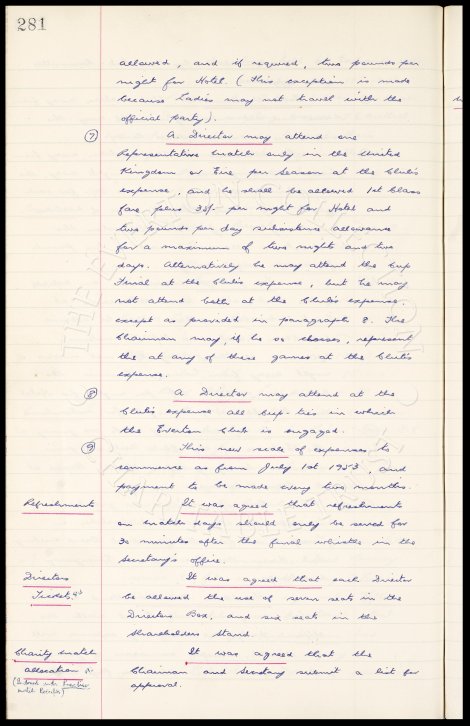 281
allowed, and if required, two pounds per
night for Hotel. (This exception is made
because Ladies may not travel with the
official party).
(7) A Director may attend one
Representative match only in the United
Kingdom or Eire per season at the Club's
expense, and he shall be allowed 1st Class
fare plus 35/- per night for Hotel and
two pounds per day subsistence allowance
for a maximum of two nights and two
days. Alternatively he may attend the Cup
Final at the Club's expense, but he may
not attend both at the Club's expense,
except as provided in paragraph 8. The
Chairman may, if he so chooses, represent
the at any of these games at the Club's
expense.
(8) A Director may attend at the
Club's expense all Cup-ties in which
the Everton Club is engaged.
(9) This new scale of expenses to
commence as from July 1st 1953, and
payment to be made every two months.
Refreshments It was agreed that refreshments
on match days should only be served for
30 minutes after the final whistle in the
Secretary's office.
Directors It was agreed that each Director
Tickets
be allowed the use of seven seats in the
Directors Box, and six seats in the
Shareholders Stand.
Charity match It was agreed that the
allocation
Chairman and Secretary submit a list for
approval.